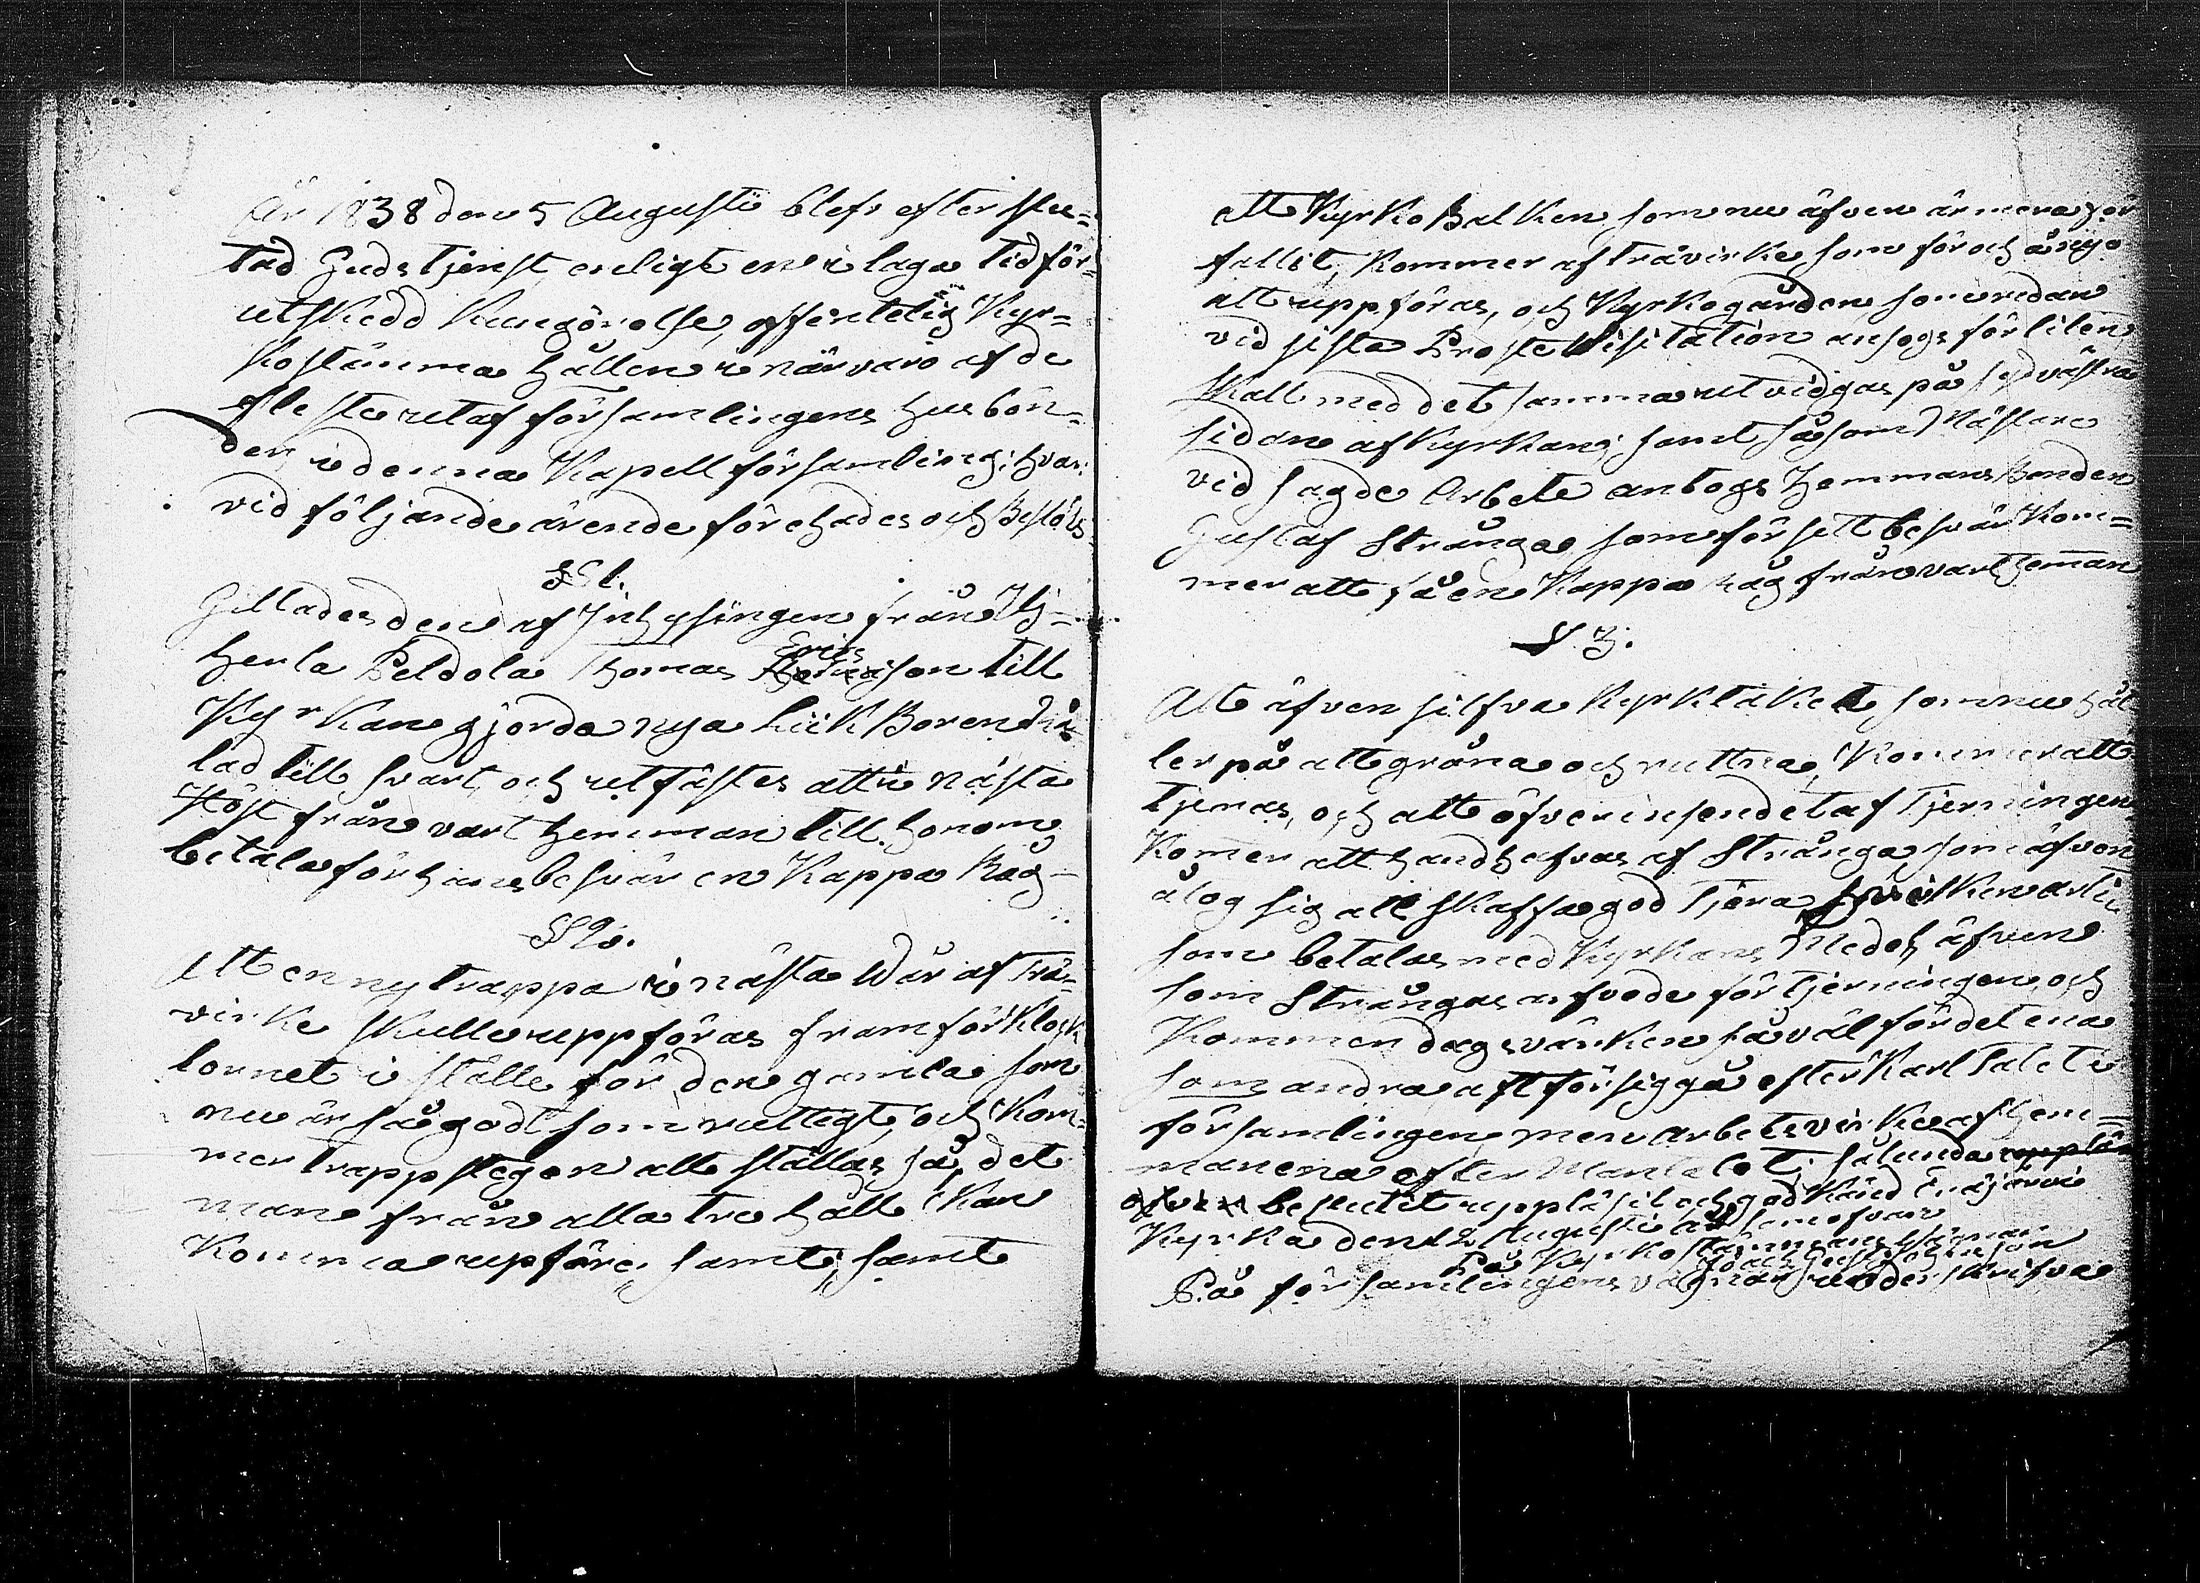 År 1838 den 5 Augusti blefs efter slu=
tad Gudstjenst, enligt en i laga tid för=
utskedd Kungörelse, offentelig Kyr=
kostämma hållen i närvaro af de
fleste utaf församlingens husbön=
der i denna Kapell församling; hvar:
vid följande ärende förehades och Beslöts
§ 1.
Gillades den af Inhysingen från Yli=
herla Peldola Thomas Ericsson till
Kyrkan gjorda nya Liik Boren
lad till svart, och utfästes att i nästa
Höst från vart hemman till honom
betala för hans besvär en Kappa Råg
§ 2.
Att en ny trappa i nästa Wår af Trä=
virke skulle uppföras framför Klock
tornet i ställe för den gamla som
nu är så godt som ruttegt, och Kom=
mer trappstegen att ställas så, det
man från alla tre håll Kan
Komma uppföre; samt, samt
att Kyrko Balken som nu äfven är mera för
fallit, Kommer af trävirke som för och å nyo
att uppföras, och Kyrkogården som redan
vid sista Proste Visitation ansogs för liten
Skall med det samma utvidgas på sydvästra
sidan af Kyrkan; samt såsom Mästare
vid sagde Arbete antogs Hemmans Bonden
Gustaf Strånga som för sitt besvär Kom=
mer att få en Kappa råg från vart heman
§ 3.
Att äfven sjelfva Kyrktaket, som nu hål
ler på att gråna och ruttna, Kommer att
tjeras, och att öfverinseendet af Tjerningen
Komer att handhafvas af Strånga som äfven
åtog sig att skaffa god Tjera
som betalas med Kyrkans Medel, äfven
som Strångas arfvode för Tjerningen, och
Kommer dagsvärken så väl för det ena
som andra att för sig gå efter Karl Talet i
församlingen men arbetsvirke af hem=
manena efter Mantalet; sålunda
öfven beslutit uppläsit och godkänd Enäjärvi
Kyrka den 12 Augusti år som ofvan
På Kyrkostämmans vägnar
På församlingens vägnar underskrifva